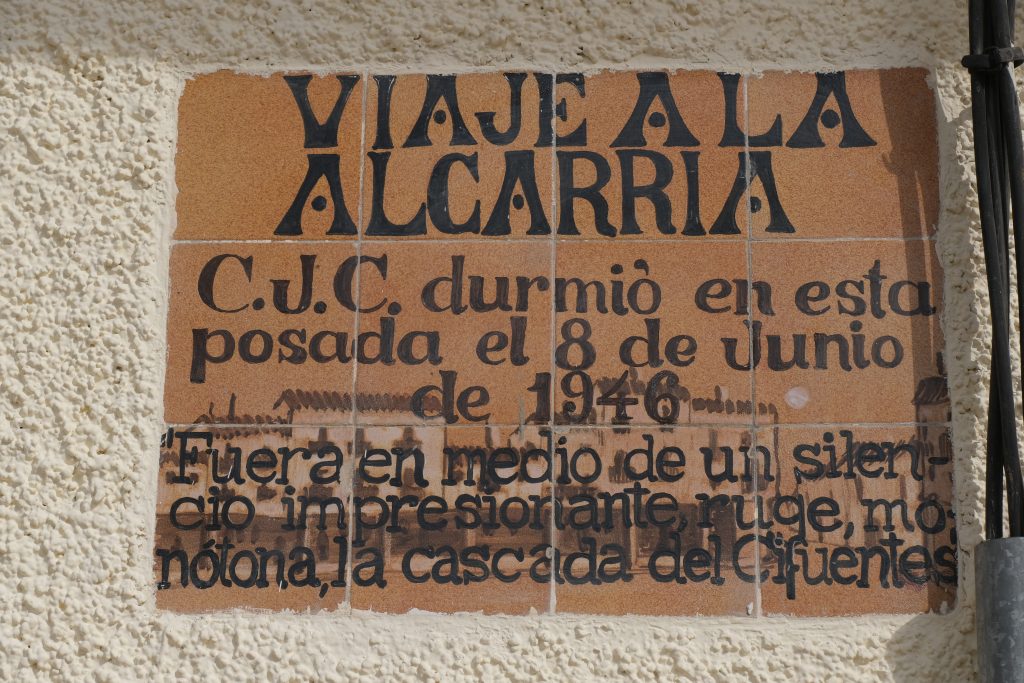 VIAJE A LA
ALCARRIA
C.J.C. durmió en esta
posada el 8 de Junio
de 1946
"Fuera en medio de un silen-
cio impresionante, ruge, mo-
nótona, la cascada del Cifuentes